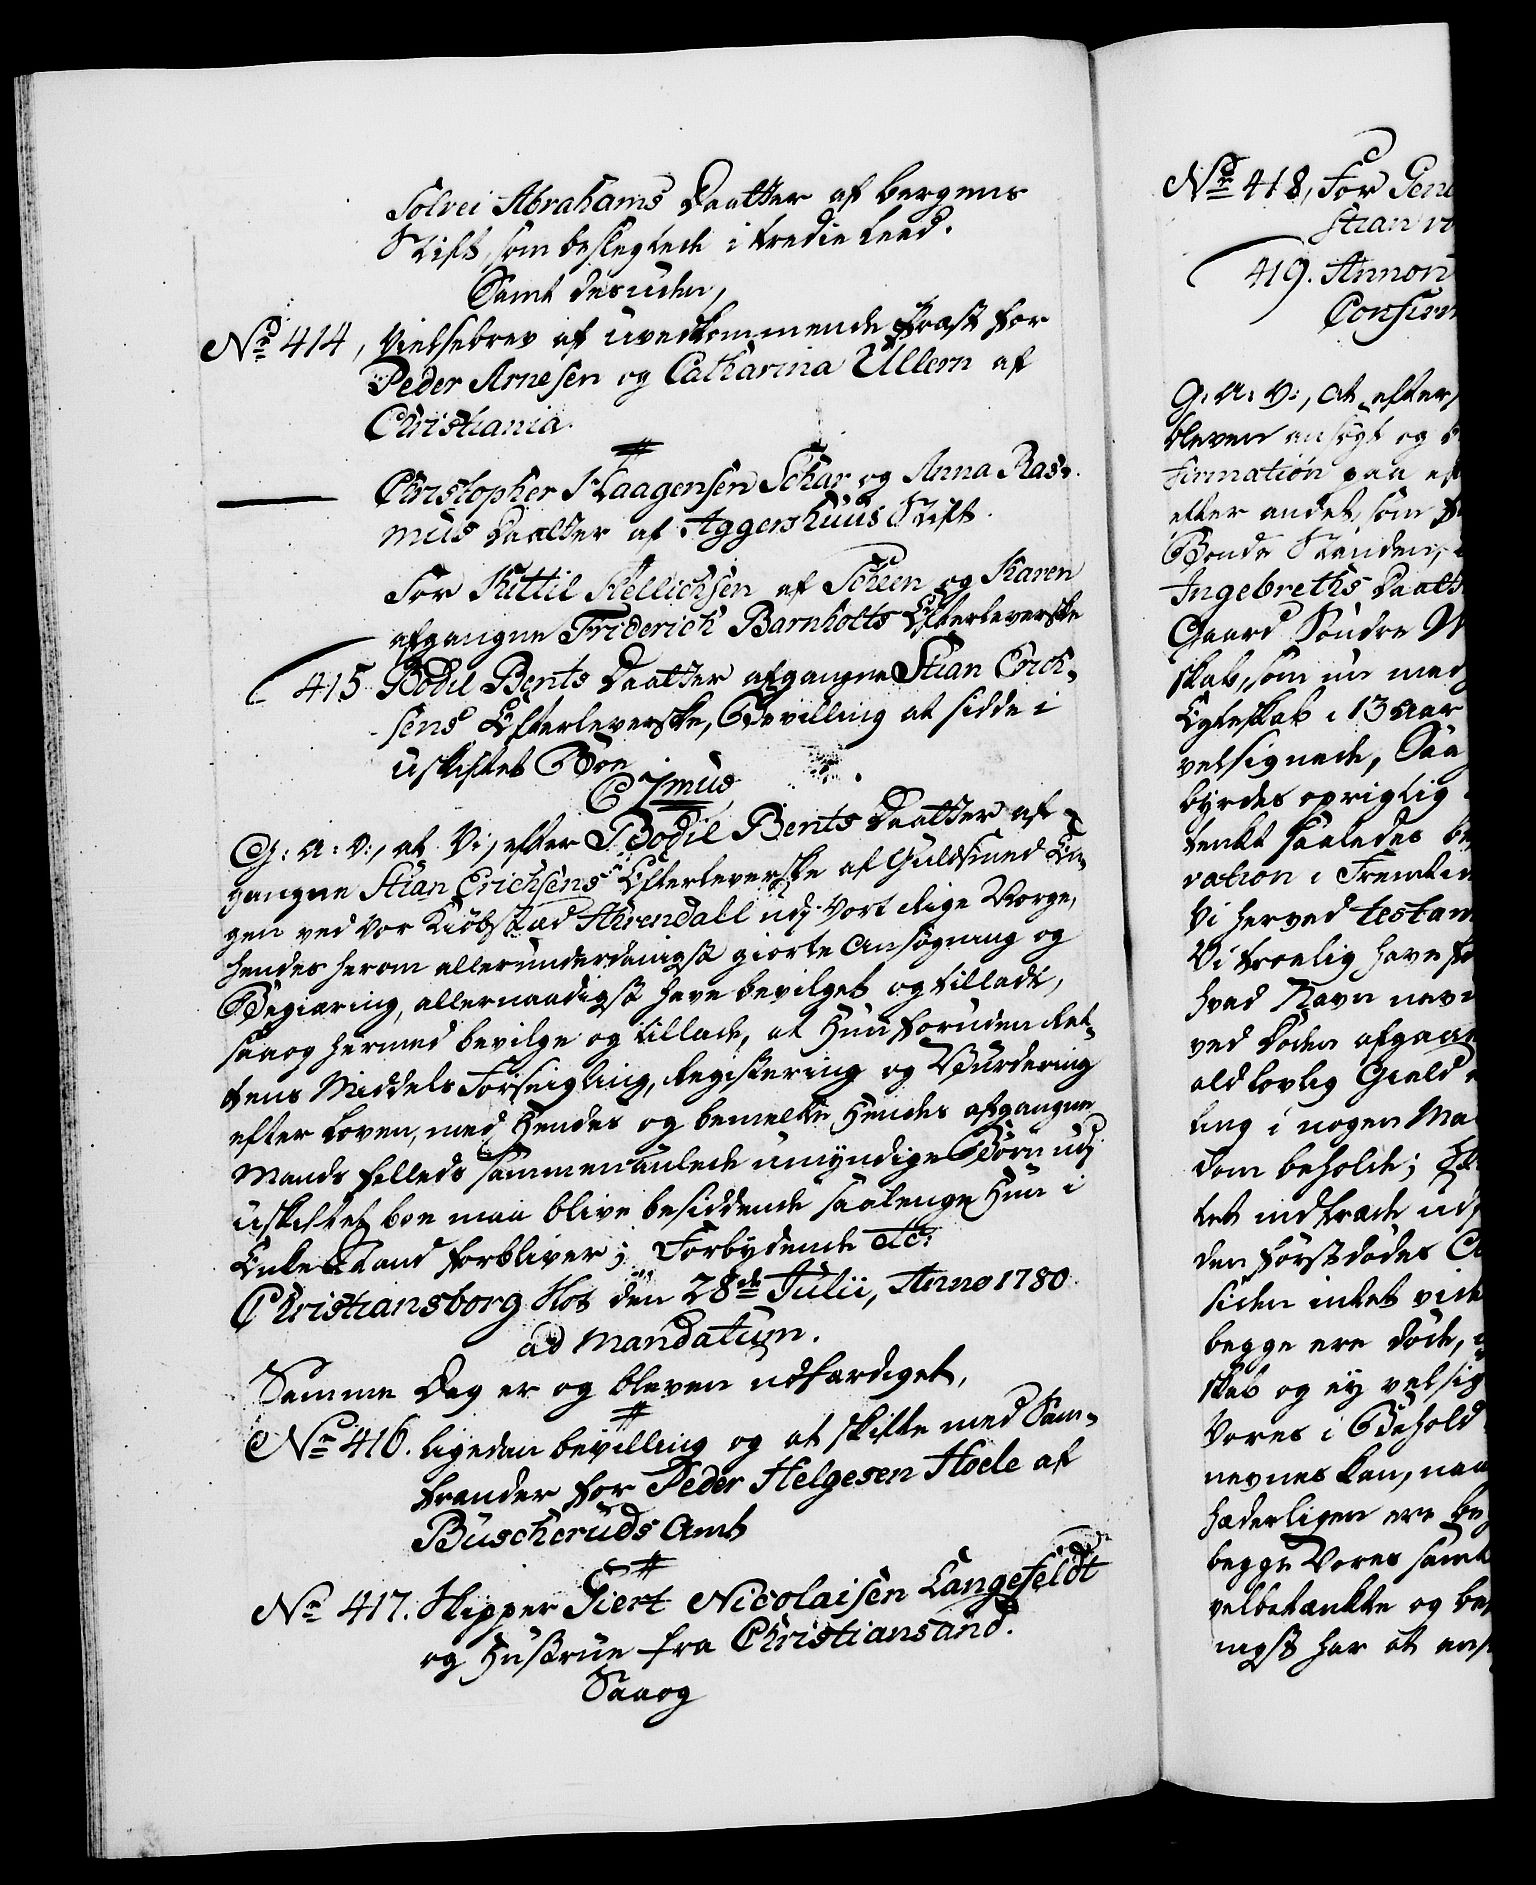 Solvei Abrahams Daatter af Bergens
Stift, som beslegtede i tredie Leed.
Samt desuden,
No 414, Vielsebrev af uvedkommende Præst for
Peder Arnesen og Catharina Ullern af
Christiania.
Christopher Haagensen Schar og Anna Ras-
mus Daatter af Aggershuus Stift.
For Kittil Kellichsen af Scheen og Karen
afgangne Friderich Barnholts Efterleverske
415 Bodil Bents Daatter afgangne Stian Erich-
sens Efterleverske, Bevilling at sidde i
uskiftet Boe
C7mus
G: A: V:, at Vi, efter Bodil Bents Daatter af-
gangne Stian Erichsens Efterleverske af Guldsmed En-
gen ved Vor Kiöbstad Ahrendall udj Vort Rige Norge,
hendes herom allerunderdanigst giorte Ansøgning og
Begiæring, allernaadigst have bevilget og tilladt,
saa og hermed bevilge og tillade, at Hun foruden Ret-
tens Middels Forseigling, Registering og Vurdering
efter Loven, med Hendes og bemelte Hendes afgangne
Mands felleds sammen aulede umyndige Børn udj
uskiftet boe maa blive besiddende saalenge Hun i
Enke Stand forbliver; Forbydende etc:
Christiansborg Slot den 28de Julii, Anno 1780
ad Mandatum.
Samme Dag er og bleven udfærdiget,
No 416. ligedan bevilling og at skifte med Sam-
frænder for Peder Helgesen Hoele af
Buscheruds Amt
No 417. Skipper Giert Nicolaisen Langefeldt
og Hustrue fra Christiansand.
Saa og
No 418, For
Stian
419.
G: A: V:, at efter
bleven ansøgt og
firmation paa
efter andet, som
Bonde Standen,
Ingebreths Daatt
Gaard Søndre
skab, som nu
Egteskab i 13 Aar
velsignede, Saa
byrdes opriglig
tenkt saaledes
vation i
Vi herved testam
Vi troelig have
hvad Navn
ved Døden
ald lovlig Gield
ling i nogen
dom beholde;
tet indtræde udj
den førstdødes
siden intet
begge ere døde,
skab og ey
Vores i Behold
nevnes kan, naar
hæderligen ere
begge Vores
velbetænkte og
nigst har at